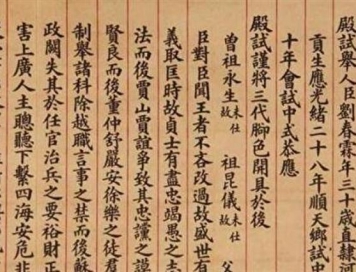 殿試舉人臣劉春霖年三十歲直隸
貢生應光緒二十八年順天鄉試中
十年會試中式恭應
殿試謹將三代腳色開具於後
曾祖永生未仕故 祖昆儀未仕故 父
臣對臣聞王者不吝改過故盛世有
義取匡時故貞士有盡忠竭愚之志
法而後賈山賈誼爭致其忠讜之謨
賢良而後董仲舒嚴安徐樂之徒群
制舉諸科除越職言事之禁而後蘇
政闕失其於任官治兵之要裕財正
害上廣人主聰聽下繫四海安危非